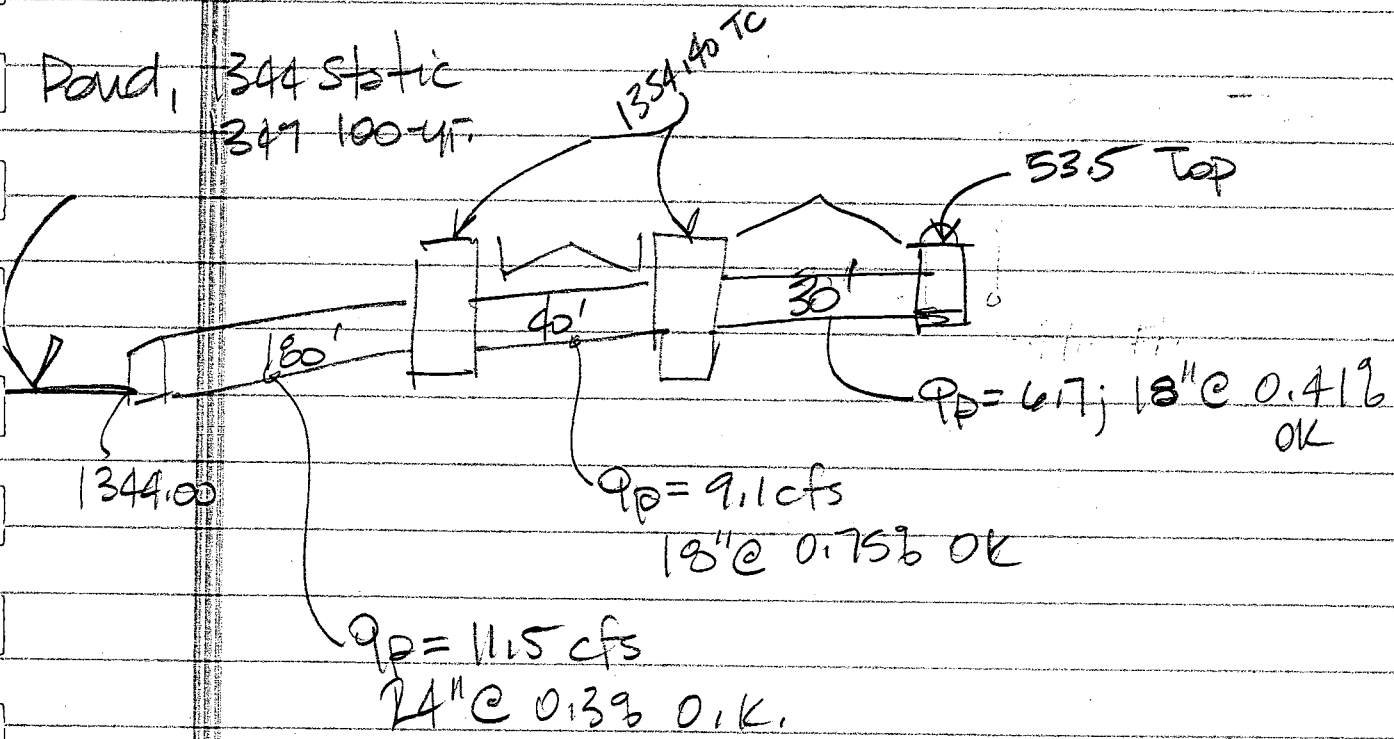 Pond, 1344 Static
1347 100-yr.
1354.40 TC
53.5 Top
180'
40'
30'
1344.00
Qp = 6.7; 18" @ 0.41%
OK
Qp = 9.1 cfs
18" @ 0.75% OK
Qp = 11.5 cfs
24" @ 0.3% O.K.